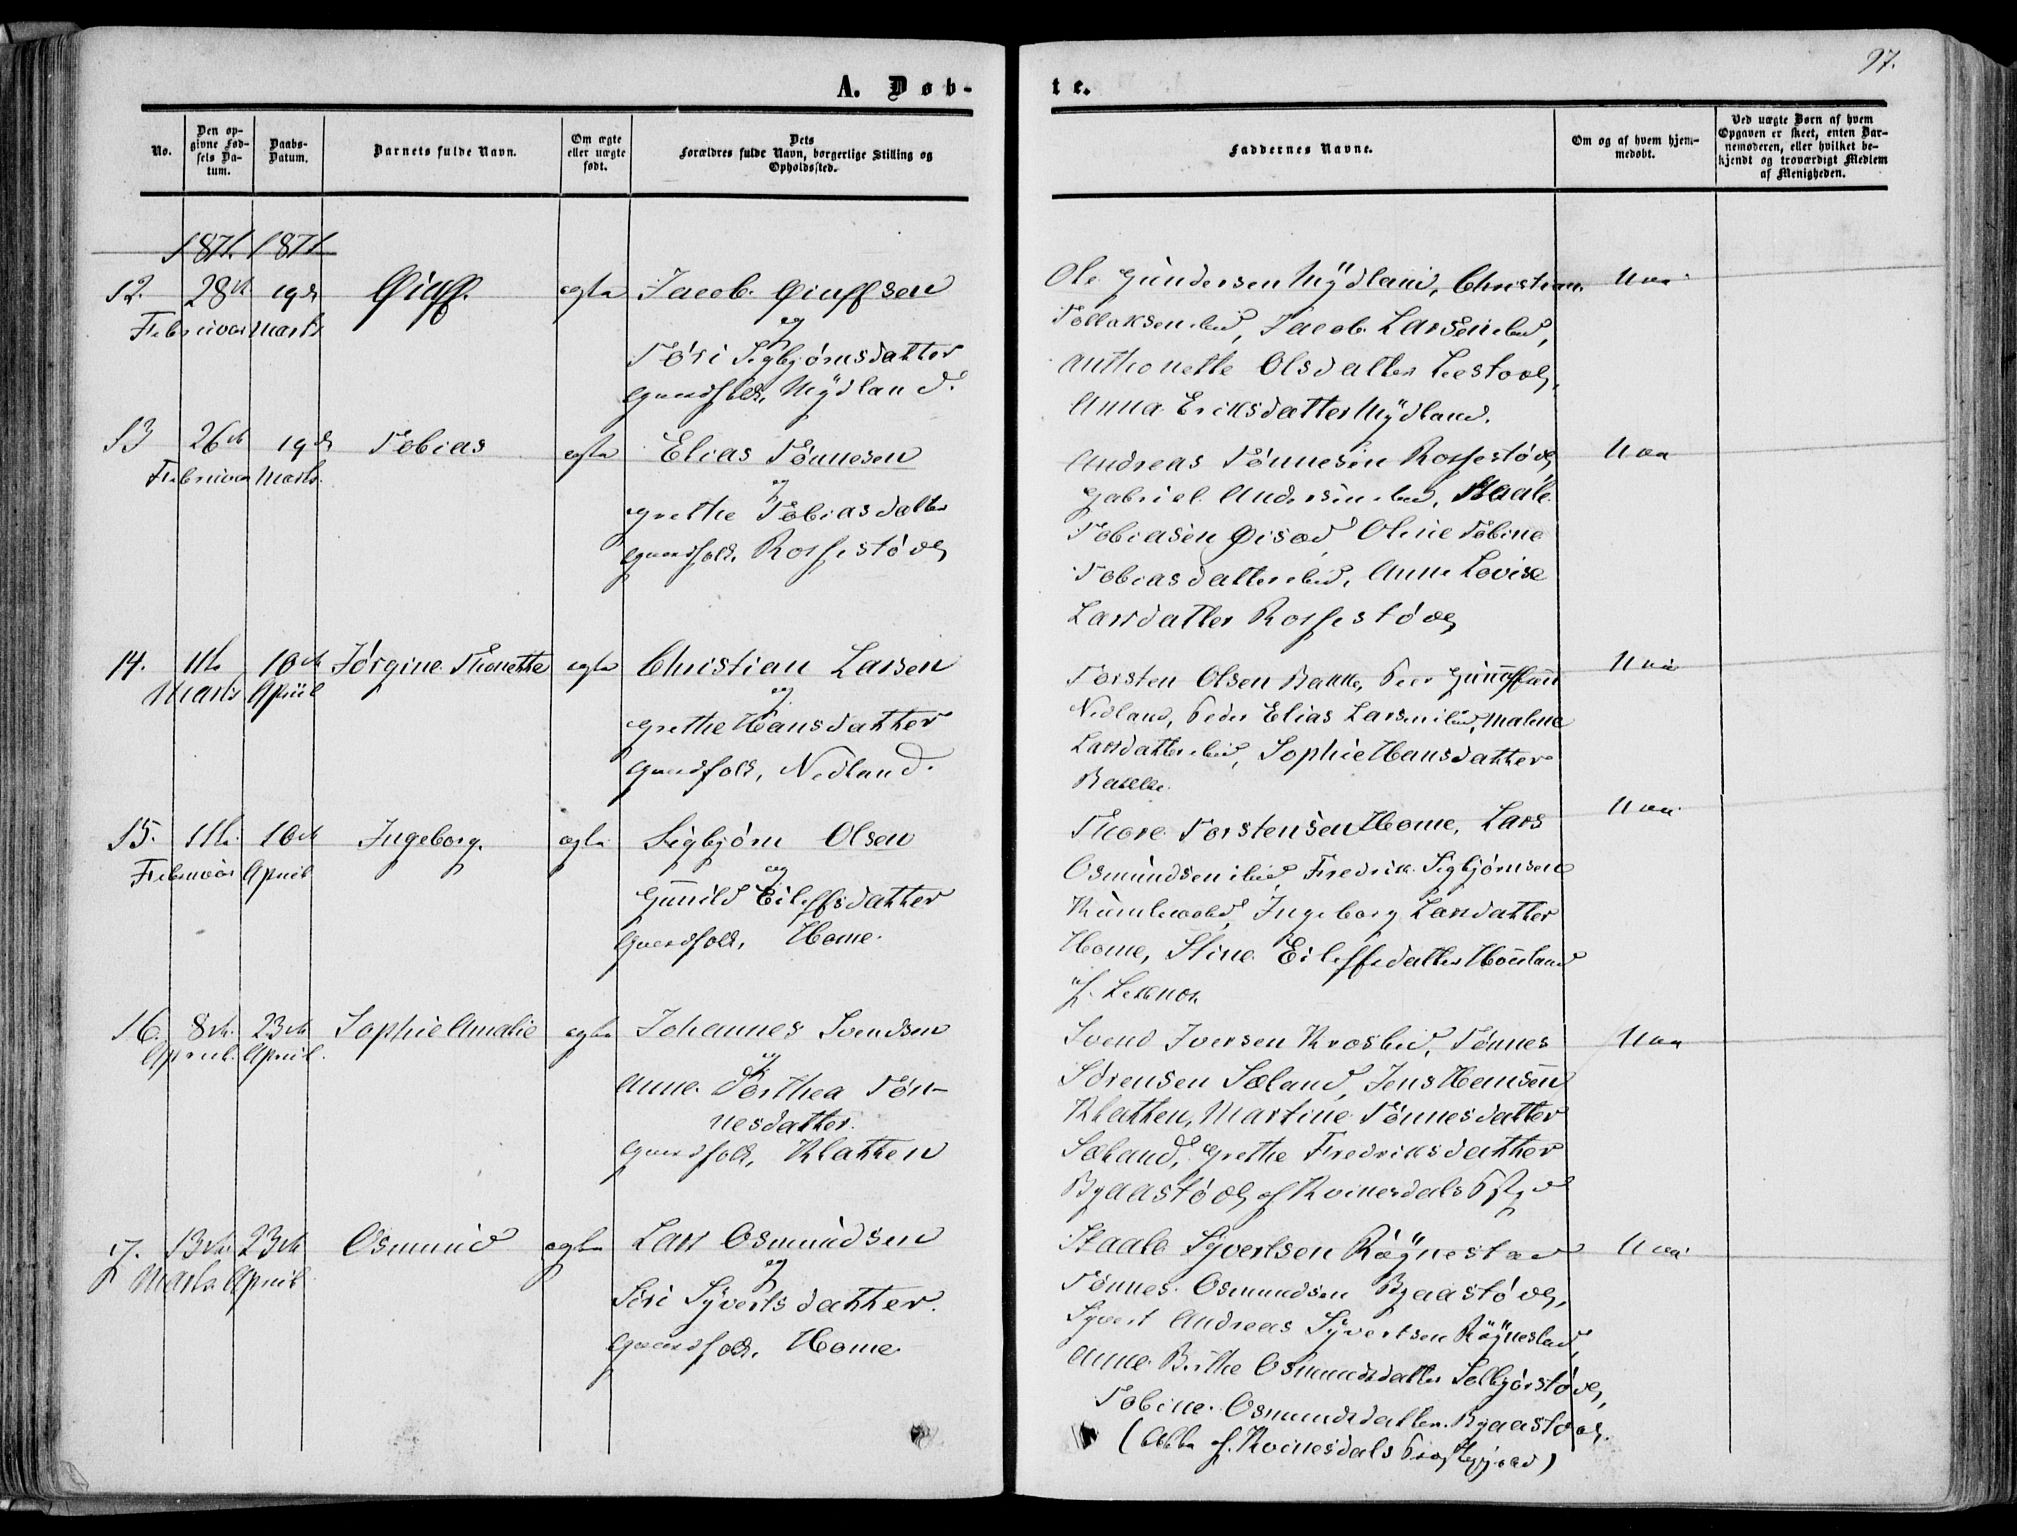 97.
A. Døb-
te.
No.
Den op-
givne Fød-
sels Da-
tum.
Daabs-
Datum.
Barnets fulde Navn.
Om ægte
eller uægte
født.
Dets
Forældres fulde Navn, borgerlige Stilling og
Opholdssted.
Faddernes Navne.
Om og af hvem hjem-
medøbt.
Ved uægte Børn af hvem
Opgaven er skeet, enten Bar-
nemoderen, eller hvilket be-
kjendt og troværdigt Medlem
af Menigheden.
1871. 1871
12. 28de 19de ægte Jacob
Februar Marts
og
Tøri Sigbjørnsdatter
Gaardfolk, Mydland.
Ole Gundersen Mydland, Christian
Tollaksen ibid, Jacob Larsen ibid,
Anthonette Olsdatter
Anna Eriksdatter Mydland.
Nei
13 26de 19de Tobias ægte Elias Tønnesen
Februar Marts.
og
Grethe Tobiasdatter
Gaardfolk, Rossestøel
Andreas Tønnesen Rossestøel
Gabriel Andersen ibid, Staale
Tobiasen Øisæd, Oline Tobine
Tobiasdatter ibid, Anne Lovise
Larsdatter Rossestøel
Nei
14. 11te 10de Jørgine Thonette ægte Christian Larsen
Marts April
og
Grethe Hansdatter
Gaardfolk, Nedland.
Torsten Olsen Bakke, Peer
Nedland, Peder Elias Larsen ibid, Malene
Larsdatter ibid, Sophie Hansdatter
Bakke.
Nei
15. 11te 10de Ingeborg. ægte Sigbjørn Olsen
Februar April
og
Gunild Eileffsdatter
Gaardfolk, Home.
Thore Torstensen Home, Lars
Osmundsen ibid, Fredrik Sigbjørnsen
Ingeborg Larsdatter
Home, Stine Eileffsdatter Houland
af
Nei
16. 8de 23de Sophie Amalie ægte Johannes Svendsen
April April.
og
Anne Dorthea Tøn-
nesdatter.
Gaardfolk, Klatten
Svend Iversen Tønnes
Sørensen Sæland, Jens Hansen
Klatten, Martine Tønnesdatter
Sæland, Grethe Fredriksdatter
Bgaastøel af Kvinesdals
Nei
17. 13de 23de Osmund ægte Lars Osmundsen
Marts April
og
Siri Syvertsdatter.
Gaardfolk, Home
Staale Syvertsen Røynestad
Tønnes Osmundsen Bgaastøel,
Syvert Andreas Syvertsen Røynestad,
Anne Berthe Osmundsdatter Solbjørstøel,
Tobine Osmundsdatter Bgaastøel.
(Alle af Kvinesdals Præstegjæld)
Nei